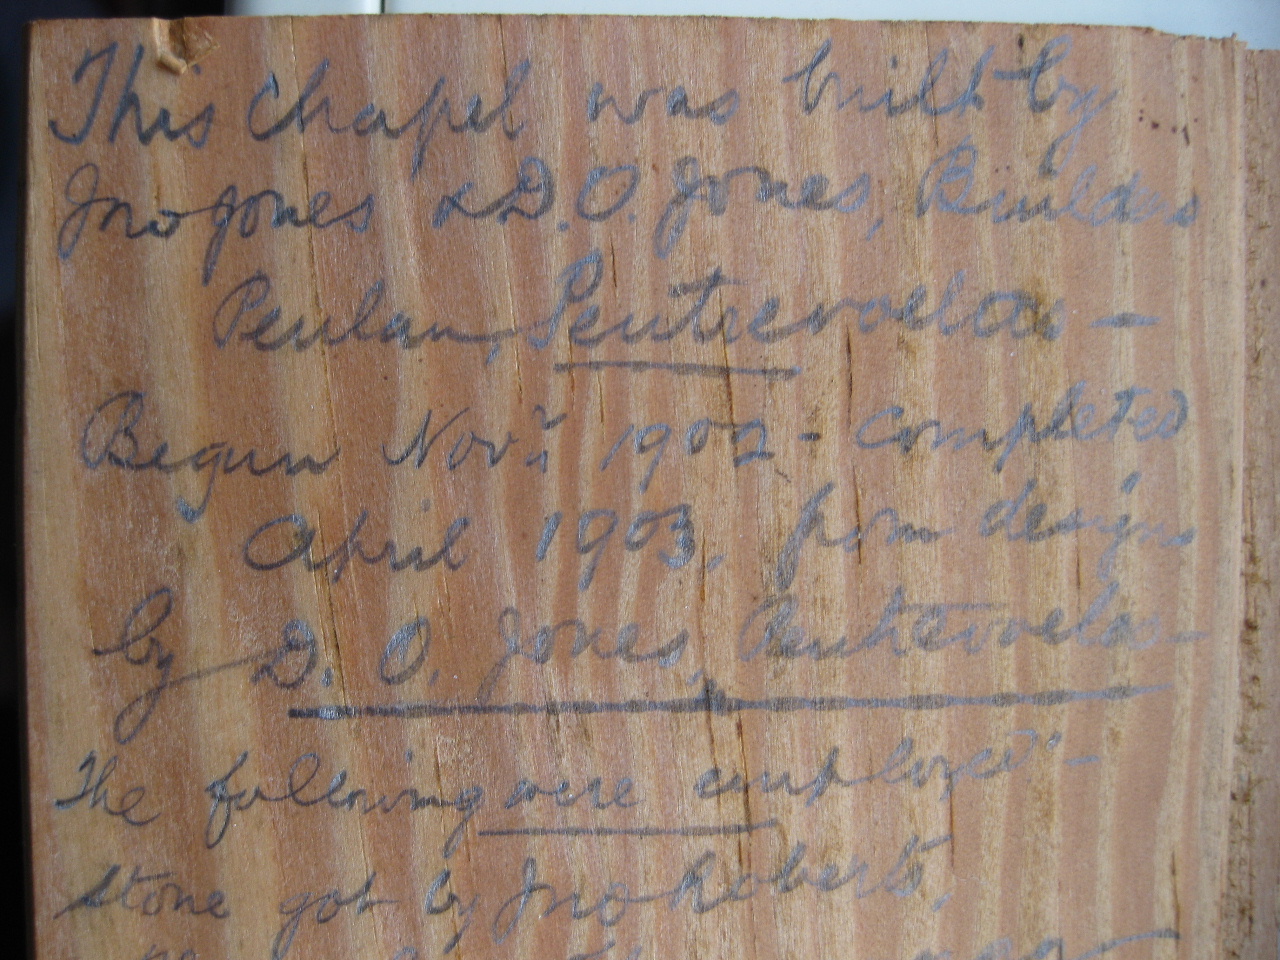 This Chapel was built by
Jno Jones & D. O. Jones, Builders
Penlan, Pentrevoelas —
Begun Novr 1902 - Completed
April 1903, from designs
by D. O. Jones, Pentrevoelas -
The following were employed -
Stone got by Jno Roberts,